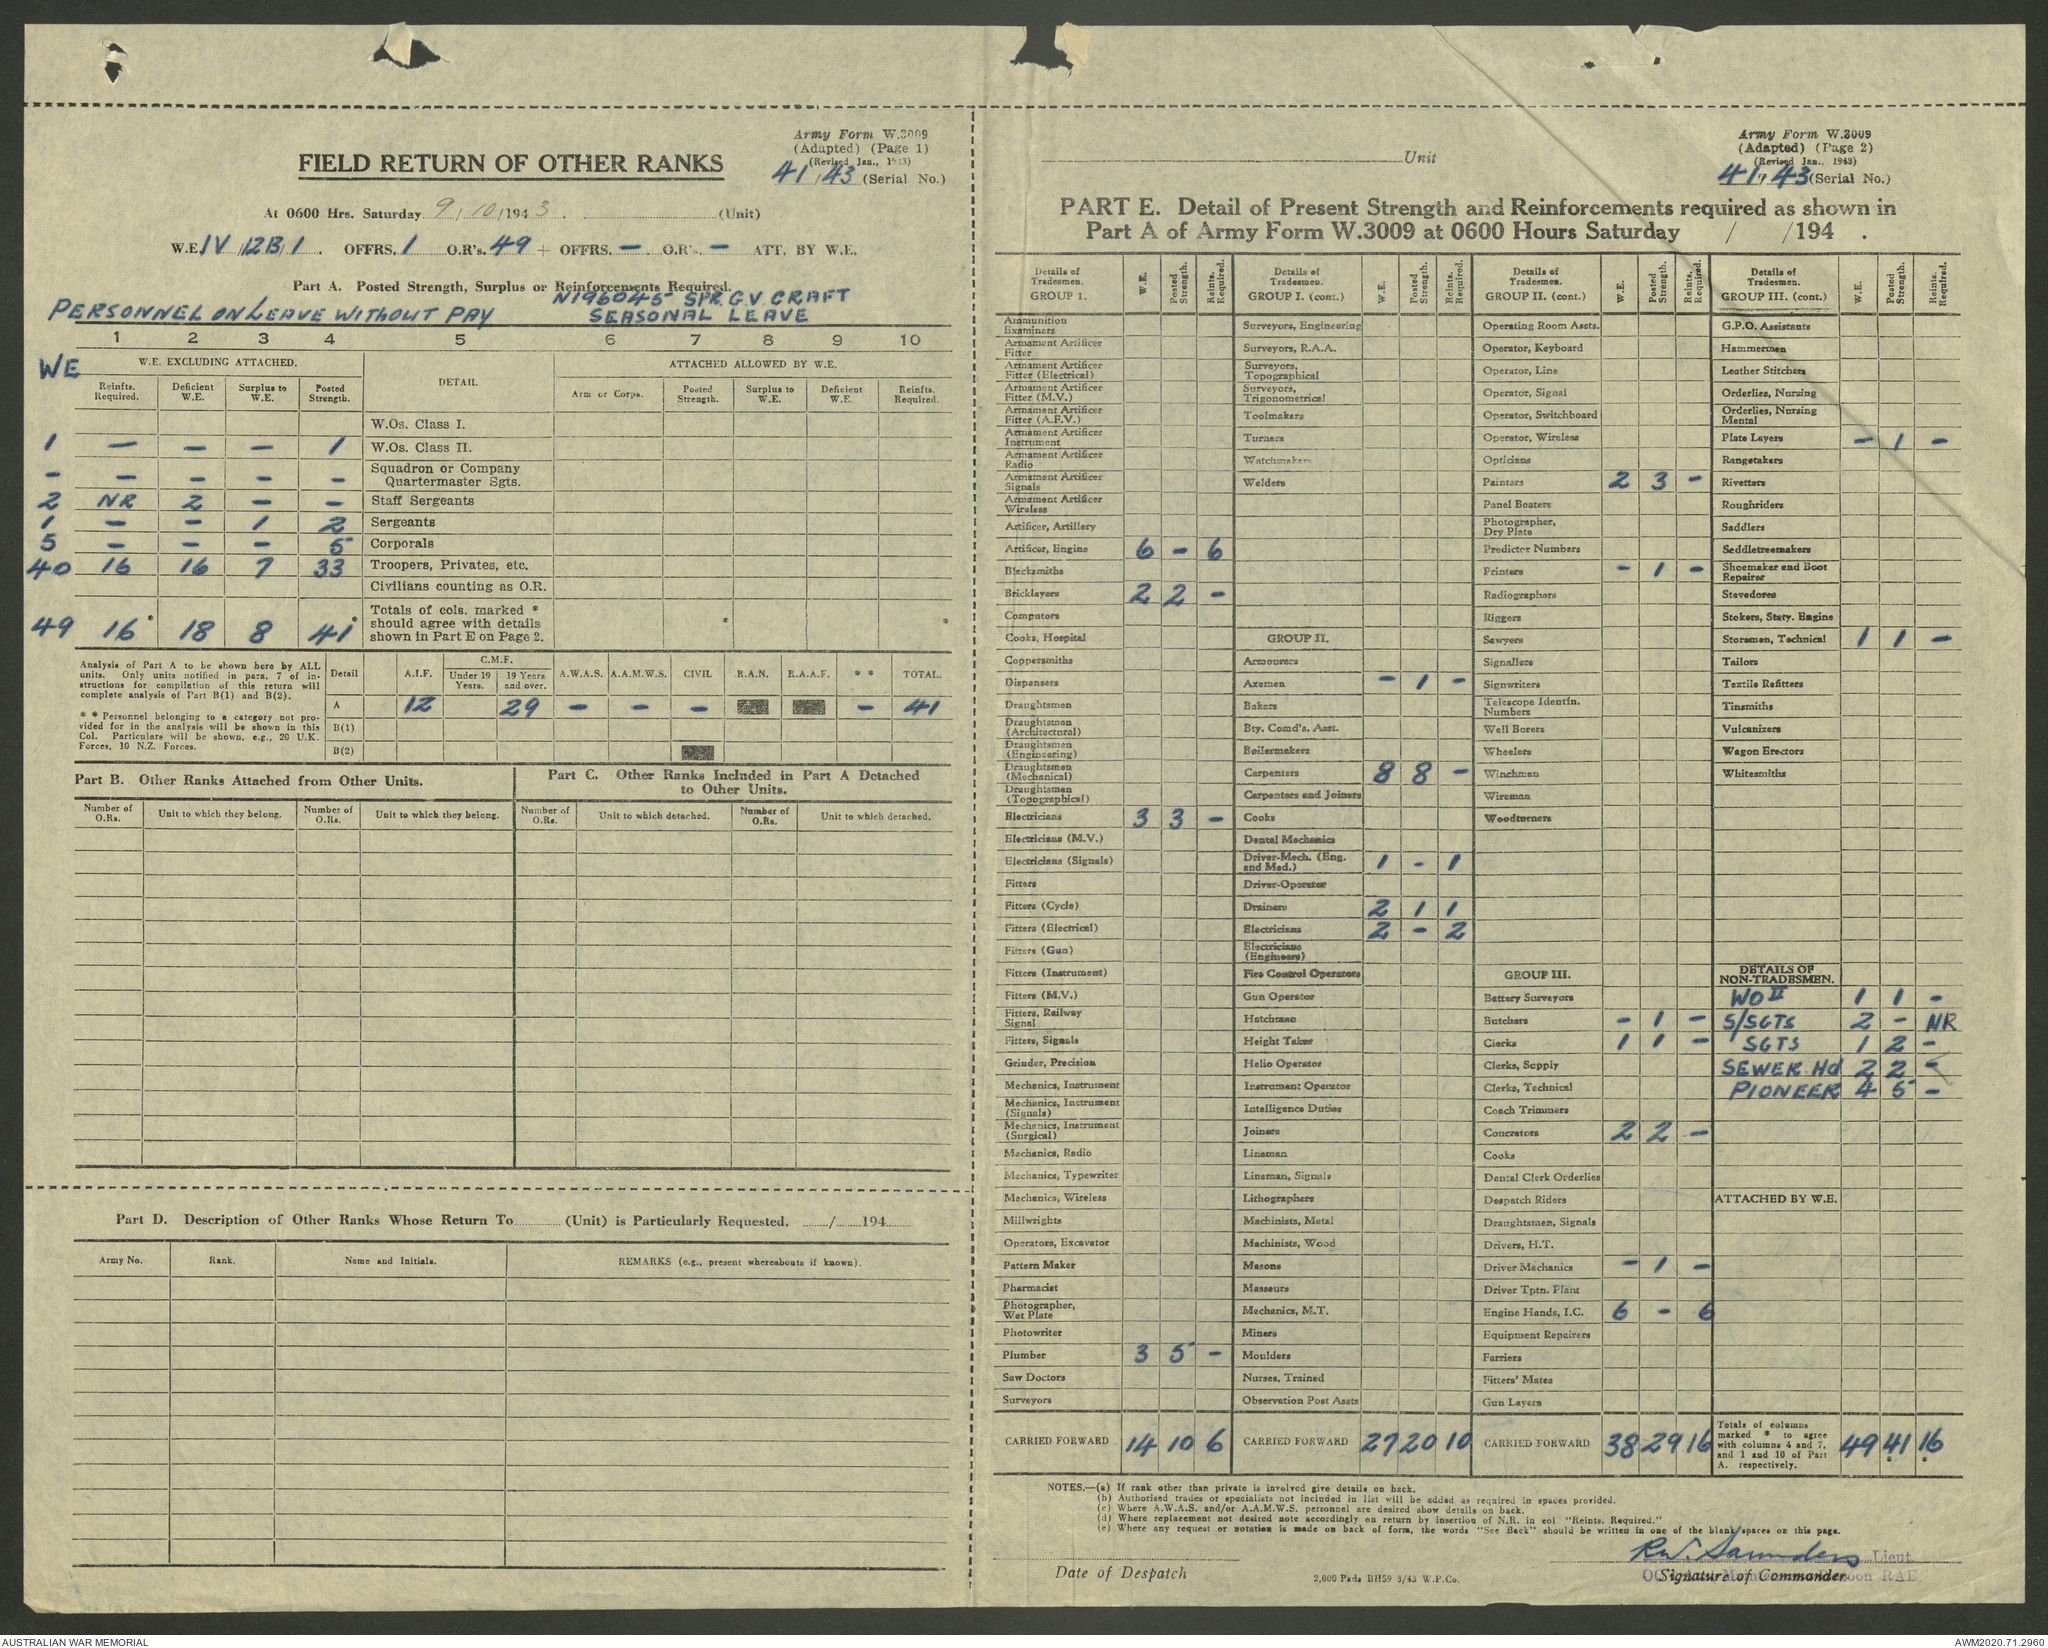 Army Form W.3009
(Adapted) (Page 1)
(Revised Jan., 1943)
41/43 (Serial No.)
FIELD RETURN OF OTHER RANKS
At 0600 Hrs. Saturday 9/10/1943. (Unit)
W.E. IV /12B/1. OFFRS. 1 O.R's. 49 + OFFRS. — O.R's. — ATT. BY W.E.
Part A. Posted Strength, Surplus or Reinforcements Required.
N196045 SPR G.V. CRAFT
PERSONNEL ON LEAVE WITHOUT PAY SEASONAL LEAVE
1 2 3 4 5 6 7 8 9 10
WE W.E. EXCLUDING ATTACHED. DETAIL ATTACHED ALLOWED BY W.E.
Reinfts. Required. Deficient W.E. Surplus to W.E. Posted Strength. Arm or Corps. Posted Strength. Surplus to W.E. Deficient W.E. Reinfts. Required.
W.Os. Class I.
1 — — — 1 W.Os. Class II.
— — — — — Squadron or Company Quartermaster Sgts.
2 NR 2 — — Staff Sergeants
1 — — 1 2 Sergeants
5 — — — 5 Corporals
40 16 16 7 33 Troopers, Privates, etc.
Civilians counting as O.R.
49 16* 18 8 41* Totals of cols. marked * should agree with details shown in Part E on Page 2. * *
Analysis of Part A to be shown here by ALL
units. Only units notified in para. 7 of in-
structions for compilation of this return will
complete analysis of Part B(1) and B(2).
* * Personnel belonging to a category not pro-
vided for in the analysis will be shown in this
Col. Particulars will be shown, e.g., 20 U.K.
Forces, 10 N.Z. Forces.
Detail A.I.F. C.M.F. Under 19 Years. 19 Years and over. A.W.A.S. A.A.M.W.S. CIVIL R.A.N. R.A.A.F. * * TOTAL.
A 12 29 — — — — 41
B(1)
B(2)
Part B. Other Ranks Attached from Other Units.
Number of O.Rs. Unit to which they belong. Number of O.Rs. Unit to which they belong.
Part C. Other Ranks Included in Part A Detached
to Other Units.
Number of O.Rs. Unit to which detached. Number of O.Rs. Unit to which detached.
Part D. Description of Other Ranks Whose Return To (Unit) is Particularly Requested. / 194
Army No. Rank. Name and Initials. REMARKS (e.g., present whereabouts if known).
Unit
Army Form W.3009
(Adapted) (Page 2)
(Revised Jan., 1943)
41/43 (Serial No.)
PART E. Detail of Present Strength and Reinforcements required as shown in
Part A of Army Form W.3009 at 0600 Hours Saturday / /194 .
Details of Tradesmen. GROUP 1. W.E. Posted Strength. Reints. Required.
Ammunition Examiners
Armament Artificer Fitter
Armament Artificer Fitter (Electrical)
Armament Artificer Fitter (M.V.)
Armament Artificer Fitter (A.F.V.)
Armament Artificer Instrument
Armament Artificer Radio
Armament Artificer Signals
Armament Artificer Wireless
Artificer, Artillery
Artificer, Engine 6 — 6
Blacksmiths
Bricklayers 2 2 —
Computors
Cooks, Hospital
Coppersmiths
Dispensers
Draughtsmen
Draughtsmen (Architectural)
Draughtsmen (Engineering)
Draughtsmen (Mechanical)
Draughtsmen (Topographical)
Electricians 3 3 —
Electricians (M.V.)
Electricians (Signals)
Fitters
Fitters (Cycle)
Fitters (Electrical)
Fitters (Gun)
Fitters (Instrument)
Fitters (M.V.)
Fitters, Railway Signal
Fitters, Signals
Grinder, Precision
Mechanics, Instrument
Mechanics, Instrument (Signals)
Mechanics, Instrument (Surgical)
Mechanics, Radio
Mechanics, Typewriter
Mechanics, Wireless
Millwrights
Operators, Excavator
Pattern Maker
Pharmacist
Photographer, Wet Plate
Photowriter
Plumber 3 5 —
Saw Doctors
Surveyors
CARRIED FORWARD 14 10 6
Details of Tradesmen. GROUP I. (cont.) W.E. Posted Strength. Reints. Required.
Surveyors, Engineering
Surveyors, R.A.A.
Surveyors, Topographical
Surveyors, Trigonometrical
Toolmakers
Turners
Watchmakers
Welders
GROUP II.
Armourers
Axemen — 1 —
Bakers
Bty. Comd's. Asst.
Boilermakers
Carpenters 8 8 —
Carpenters and Joiners
Cooks
Dental Mechanics
Driver-Mech. (Eng. and Med.) 1 - 1
Driver-Operator
Drainers 2 1 1
Electricians 2 - 2
Electricians (Engineers)
Fire Control Operators
Gun Operator
Hatchman
Height Taker
Helio Operator
Instrument Operator
Intelligence Duties
Joiners
Lineman
Lineman, Signals
Lithographers
Machinists, Metal
Machinists, Wood
Masons
Masseurs
Mechanics, M.T.
Miners
Moulders
Nurses, Trained
Observation Post Assts
CARRIED FORWARD 27 20 10
Details of Tradesmen. GROUP II. (cont.) W.E. Posted Strength. Reints. Required.
Operating Room Assts.
Operator, Keyboard
Operator, Line
Operator, Signal
Operator, Switchboard
Operator, Wireless
Opticians
Painters 2 3 —
Panel Beaters
Photographer, Dry Plate
Predictor Numbers
Printers — 1 —
Radiographers
Riggers
Sawyers
Signallers
Signwriters
Telescope Identfn. Numbers
Well Borers
Wheelers
Winchman
Wireman
Woodturners
GROUP III.
Battery Surveyors
Butchers — 1 —
Clerks 1 1 —
Clerks, Supply
Clerks, Technical
Coach Trimmers
Concretors 2 2 —
Cooks
Dental Clerk Orderlies
Despatch Riders
Draughtsmen, Signals
Drivers, H.T.
Driver Mechanics — 1 —
Driver Tptn. Plant
Engine Hands, I.C. 6 — 6
Equipment Repairers
Farriers
Fitters' Mates
Gun Layers
CARRIED FORWARD 38 29 16
Details of Tradesmen. GROUP III. (cont.) W.E. Posted Strength. Reints. Required.
G.P.O. Assistants
Hammermen
Leather Stitchers
Orderlies, Nursing
Orderlies, Nursing Mental
Plate Layers — 1 —
Rangetakers
Rivetters
Roughriders
Saddlers
Saddletreemakers
Shoemaker and Boot Repairer
Stevedores
Stokers, Staty. Engine
Storemen, Technical 1 1 —
Tailors
Textile Refitters
Tinsmiths
Vulcanizers
Wagon Erectors
Whitesmiths
DETAILS OF NON-TRADESMEN.
WO II 1 1 —
S/SGTS 2 — NR
SGTS 1 2 —
SEWER Hd 2 2 —
PIONEER 4 5 —
ATTACHED BY W.E.
Totals of columns marked * to agree with columns 4 and 7, and 1 and 10 of Part A. respectively. 49 41* 16*
NOTES.—(a) If rank other than private is involved give details on back.
(b) Authorised trades or specialists not included in list will be added as required in spaces provided.
(c) Where A.W.A.S. and/or A.A.M.W.S. personnel are desired show details on back.
(d) Where replacement not desired note accordingly on return by insertion of N.R. in col "Reints. Required."
(e) Where any request or notation is made on back of form, the words "See Back" should be written in one of the blank spaces on this page.
R.W. Saunders Lieut
Date of Despatch 2,000 Pads BH59 3/43 W.P.Co. Signature of Commander
RAE
AUSTRALIAN WAR MEMORIAL AWM2020.71.2960